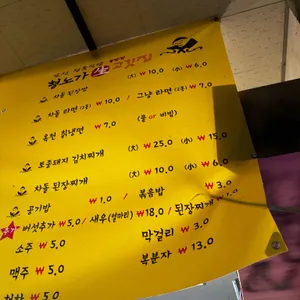 차돌 된장밥 (大) ₩10,0 (小) ₩6,0
차돌 라면 (2종) ₩10,0 / 그냥 라면 (2종) ₩7,0
옥천 칡냉면 ₩7,0 (물 or 비빔)
토종돼지 김치찌개 (大) ₩25,0 (小) ₩15,0
차돌 된장찌개 (大) ₩10,0 (小) ₩6,0
공기밥 ₩1,0 / 볶음밥 ₩3,0
버섯추가 ₩5,0 / 새우(열마리) ₩18,0 / 된장찌개
소주 ₩5,0 막걸리 ₩3,0
맥주 ₩5,0 복분자 ₩13,0
₩5,0